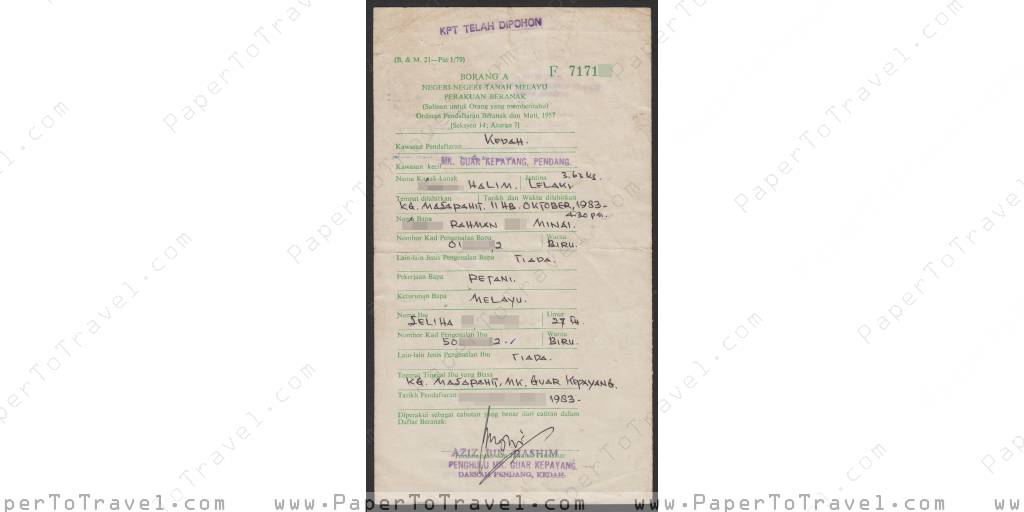 KPT TELAH DIPOHON
(B. & M. 21—Pin 1/79)
F 7171
BORANG A
NEGERI-NEGERI TANAH MELAYU
PERAKUAN BERANAK
(Salinan untuk Orang yang memberitahu)
Ordinan Pendaftaran Beranak dan Mati, 1957
[Seksyen 14; Aturan 7]
Kawasan Pendaftaran KEDAH.
Kawasan kecil MK. GUAR KEPAYANG, PENDANG.
Nama Kanak-kanak HALIM. Jantina LELAKI 3.63 kg.
Tempat dilahirkan Tarikh dan Waktu dilahirkan
KG. MAJAPAHIT. 11 HB. OKTOBER, 1983-
4.30 pm.
Nama Bapa RAHMAN MINAI.
Nombor Kad Pengenalan Bapa 01 2 Warna BIRU.
Lain-lain Jenis Pengenalan Bapa TIADA.
Pekerjaan Bapa PETANI.
Keturunan Bapa MELAYU.
Nama Ibu SELIHA Umur 27 TH.
Nombor Kad Pengenalan Ibu 50 2 Warna BIRU.
Lain-lain Jenis Pengenalan Ibu TIADA.
Tempat Tinggal Ibu yang Biasa
KG. MAJAPAHIT, MK. GUAR KEPAYANG.
Tarikh Pendaftaran 1983-
Diperakui sebagai cabutan yang benar dari catitan dalam
Daftar Beranak.
AZIZ BIN HASHIM
PENGHULU MK. GUAR KEPAYANG.
DAERAH PENDANG, KEDAH.
www.PaperToTravel.com